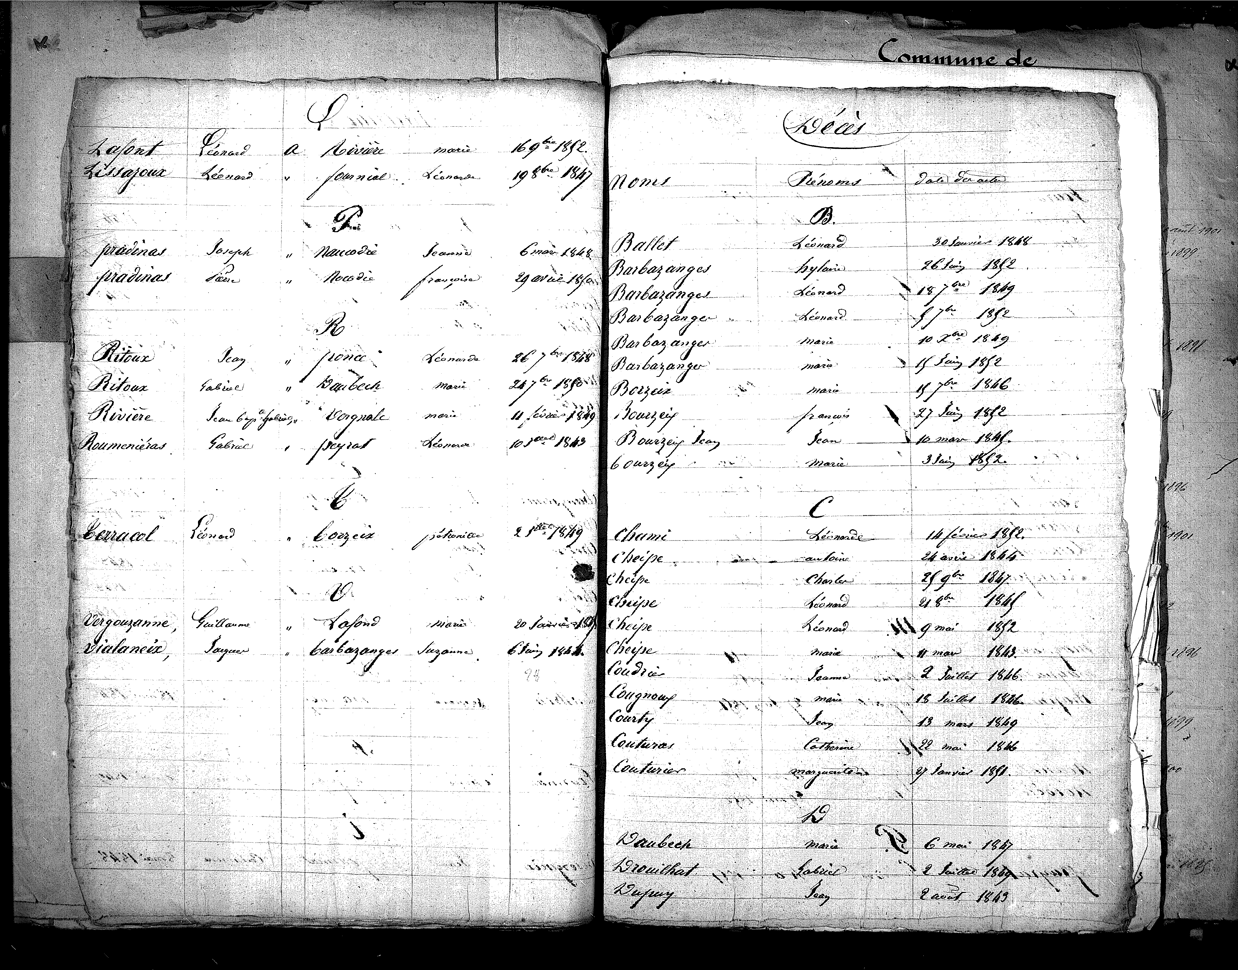 L
Lafont Léonard a Rivière marie 16 9bre 1852.
Lissajoux Léonard " fournial Léonarde 19 8bre 1847
P
pradinas Joseph " Naucodie Jeanne 6 mai 1848
pradinas " Nocodie françoise 29 avril 1850
R
Ritoux Jean " ponce Léonarde 26 7bre 1848
Ritoux Gabriel " Daubech marie 24 7bre 1850
Rivière Jean " Vergnale marie 11 février 1849
Roumeniéras Gabriel " peyrat Léonarde 10 1843
T
Terracol Léonard " Corzeix pétronille 2 1849
V
Vergouzanne, Guillaume " Lafond Marie 20 Janvier
Vialaneix, Jacques " barbazanges Suzanne 6 Juin 1844.
98
Commune de
Décès
Noms Prénoms date des actes
B.
Ballet Léonard 30 Janvier 1848
Barbazanges hylaire 26 Juin 1852.
Barbazanges Léonard 18 7bre 1849
Barbazanges Léonard 5 7bre 1852
Barbazanges marie 10 Xbre 1849
Barbazanges marie 15 Juin 1852
Borzeix marie 15 7bre 1846
Bourzeix françois 27 Juin 1852
Bourzeix Jean Jean 10 mars 1845.
bourzeix marie 3 Juin 1852.
C
Chami Léonarde 14 février 1852.
Cheize antoine 24 avril 1844
Cheize Charles 25 9bre 1847.
Cheize Léonard 21 8bre 1845
Cheize Léonard 9 mai 1852
Cheize marie 11 mars 1843
Coudrier Jeanne 2 Juillet 1846.
Cougnoux marie 18 Juillet 1846.
Courty Jean 13 mars 1849
Couturas Catherine 22 mai 1846
Couturier marguerite 27 Janvier 1851.
D
Daubech marie 6 mai 1847
Drouilhat Gabriel 2 Juillet 1849
Dupuy Jean 2 août 1843